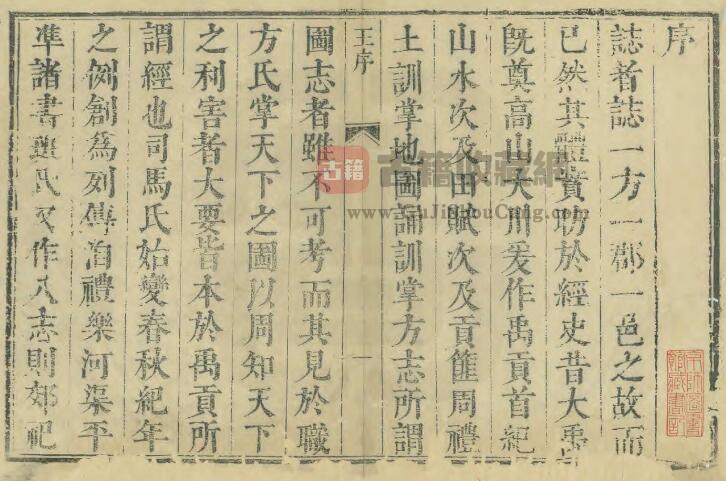 序
誌者誌一方一郡一邑之故而
已然其體實昉於經史昔大禹
既奠高山大川爰作禹貢首紀
山水次及田賦次及貢篚周禮
土訓掌地圖誦訓掌方志所謂
王序
一
圖志者雖不可考而其見於職
方氏掌天下之圖以周知天下
之利害者大要皆本於禹貢所
謂經也司馬氏始變春秋紀年
之例創為列傳洎禮樂河渠平
準諸書班氏又作八志則郊祀
古籍 古籍收藏網
www.GuJiShouCang.com
京師圖書
館藏書記